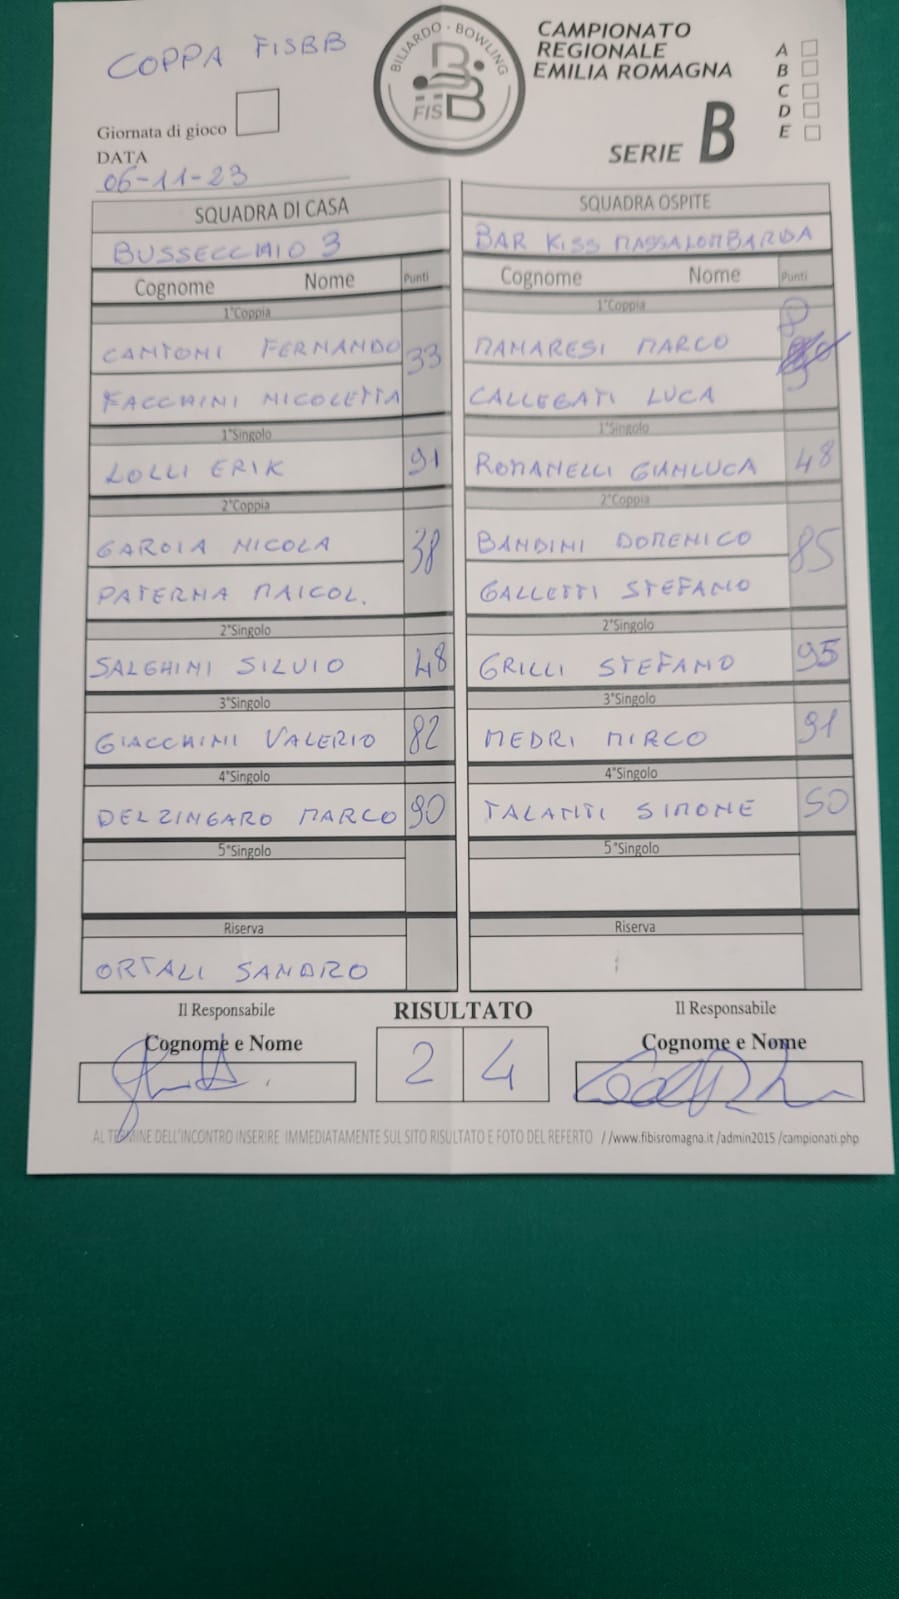 COPPA FISBB
BILIARDO - BOWLING
FISBB
CAMPIONATO
REGIONALE
EMILIA ROMAGNA
SERIE B
A
B
C
D
E
Giornata di gioco
DATA
06-11-23
SQUADRA DI CASA
SQUADRA OSPITE
BUSSECCHIO 3
BAR KISS MASSALOMBARDA
Cognome Nome Punti
Cognome Nome Punti
1°Coppia
1°Coppia
CANTONI FERNANDO 33
MAMARESI MARCO
FACCHINI NICOLETTA
CALLEGATI LUCA
1°Singolo
1°Singolo
LOLLI ERIK 91
ROMANELLI GIANLUCA 48
2°Coppia
2°Coppia
GAROIA NICOLA 38
BANDINI DOMENICO 85
PATERNA MAICOL.
GALLETTI STEFANO
2°Singolo
2°Singolo
SALGHINI SILVIO 48
GRILLI STEFANO 95
3°Singolo
3°Singolo
GIACCHINI VALERIO 82
MEDRI MIRCO 91
4°Singolo
4°Singolo
DELZINGARO MARCO 90
TALANTI SIMONE 50
5°Singolo
5°Singolo
Riserva
Riserva
ORTALI SANDRO
Il Responsabile
RISULTATO
Il Responsabile
Cognome e Nome
2 4
Cognome e Nome
AL TERMINE DELL'INCONTRO INSERIRE IMMEDIATAMENTE SUL SITO RISULTATO E FOTO DEL REFERTO //www.fibisromagna.it /admin2015 /campionati.php